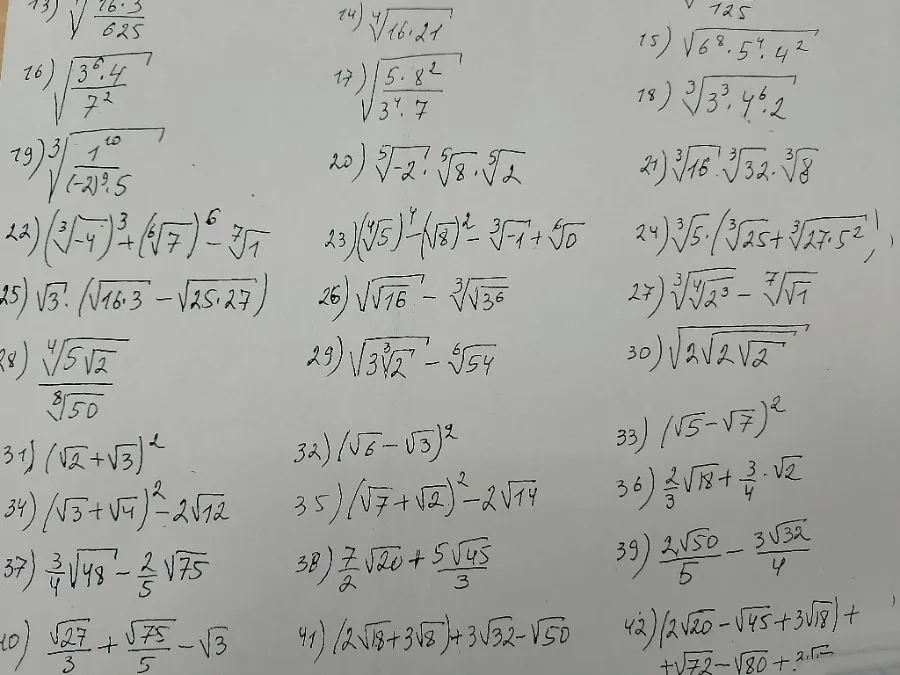 13) √(16·3/625) 14) ⁴√(16·21) 125
16) √(3⁶·4/7²) 17) √(5·8²/(3⁴·7)) 15) √(6⁸·5⁴·4²)
18) ³√(3³·4⁶·2)
19) ³√(1¹⁰/((-2)⁹·5)) 20) ⁵√-2 · ⁵√8 · ⁵√2 21) ³√16 · ³√32 · ³√8
22) (³√-4)³ + (⁶√7)⁶ - ⁷√1 23) (⁴√5)⁴ - (√8)² - ³√-1 + ⁶√0 24) ³√5 · (³√25 + ³√(27·5²))
25) √3 · (√(16·3) - √(25·27)) 26) √√16 - ³√√3⁶ 27) ³√⁴√2³ - ⁷√√1
28) ⁴√(5√2) / ⁸√50 29) √(3³√2) - ⁶√54 30) √(2√(2√2))
31) (√2 + √3)² 32) (√6 - √3)² 33) (√5 - √7)²
34) (√3 + √4)² - 2√12 35) (√7 + √2)² - 2√14 36) 2/3 √18 + 3/4 · √2
37) 3/4 √48 - 2/5 √75 38) 7/2 √20 + 5√45/3 39) 2√50/5 - 3√32/4
40) √27/3 + √75/5 - √3 41) (2√18 + 3√8) + 3√32 - √50 42) (2√20 - √45 + 3√18) +
+ √72 - √80 +